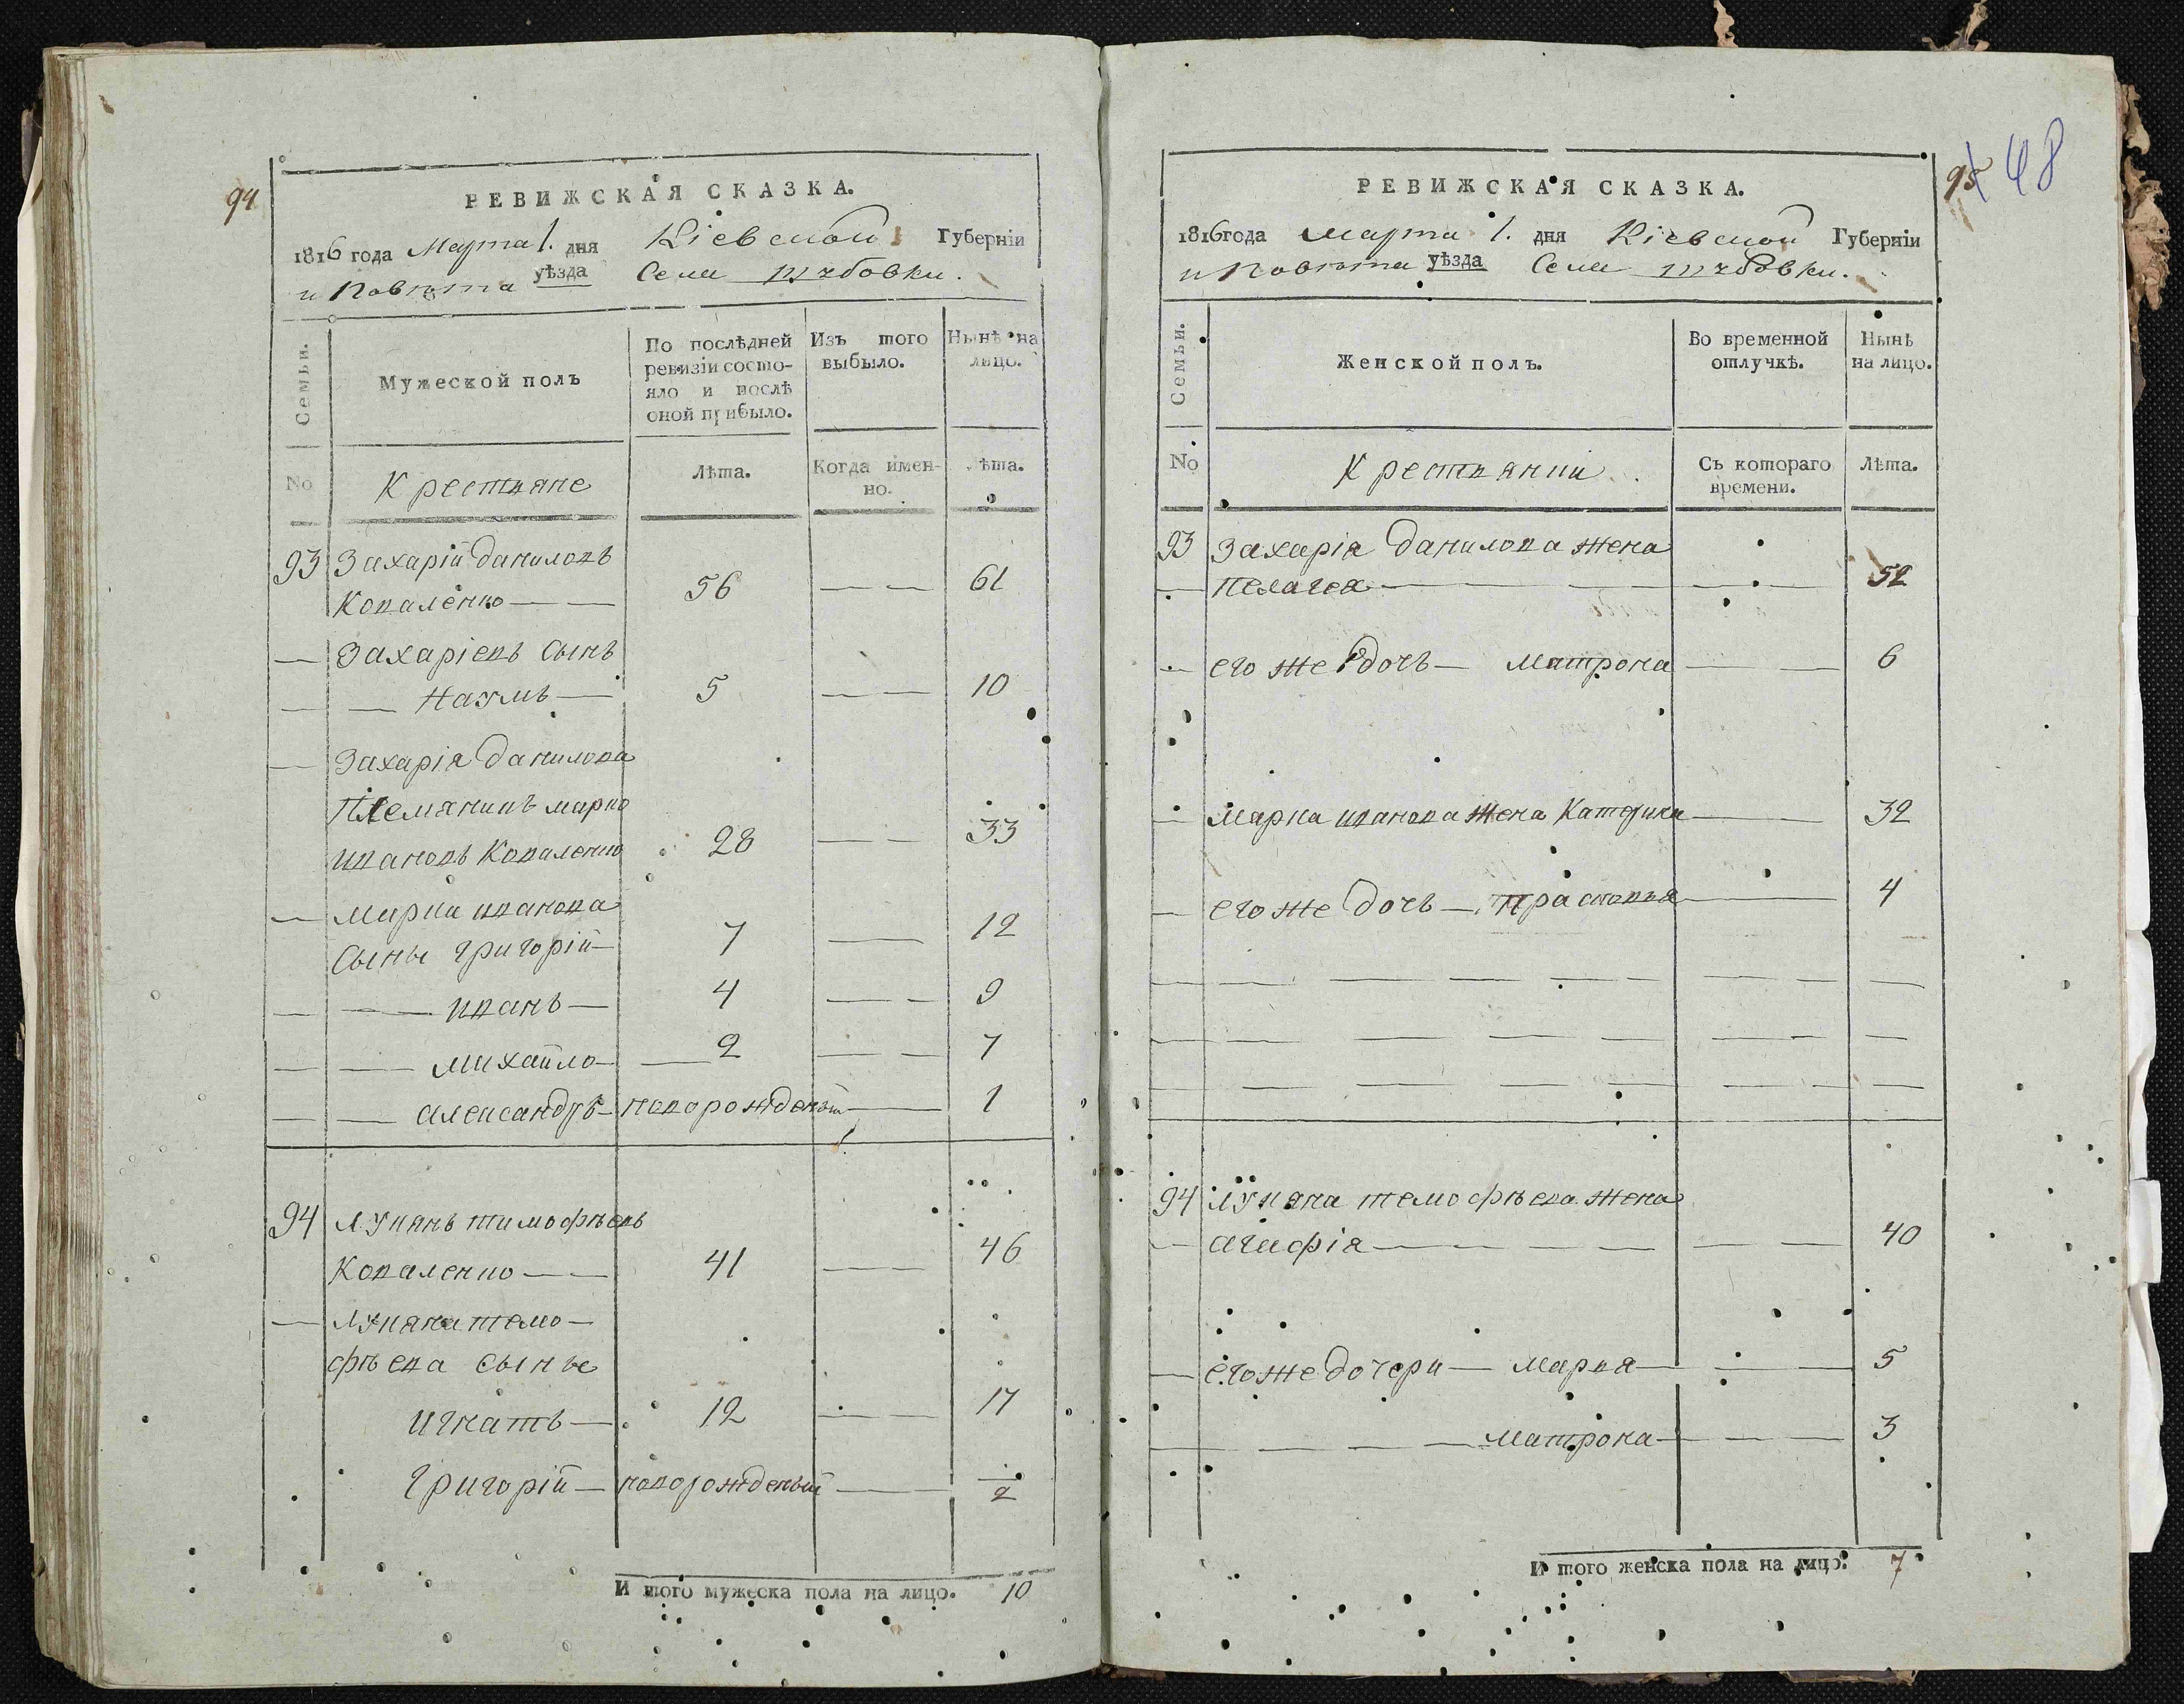 94
РЕВИЖСКАЯ СКАЗКА.
1816 года Марта 1. дня Кіевской Губерніи
и Повѣта уѣзда Села
Семьи.
Мужеской полъ
По послѣдней
ревизіи состо-
яло и послѣ
оной прибыло.
Изъ того
выбыло.
Нынѣ на
лицо.
No
Крестьяне
Лѣта.
Когда имен-
но.
Лѣта.
93 Захарій Даниловъ
Коваленко 56 61
Захаріевъ Сынъ
Наумъ 5 10
Захарія Данилова
Племяникъ марко
ивановъ Коваленко 28 33
марка иванова
Сыны григорій 7 12
иванъ 4 9
михайло 2 7
александръ новорожденый 1
94 лукянъ тимофѣевъ
Коваленко 41 46
лукяна темо-
фѣева сыны
игнатъ 12 17
григорій новорожденый 2
И того мужеска пола на лицо. 10
95 48
РЕВИЖСКАЯ СКАЗКА.
1816 года марта 1. дня Кіевской Губерніи
и Повѣта уѣзда Села
Семьи.
Женской полъ.
Во временной
отлучкѣ.
Нынѣ
на лицо.
No
Крестьянки
Съ котораго
времени.
Лѣта.
93 Захарія Данилова жена
Пелагея 52
его же дочь матрона 6
марка иванова жена Катерина 32
его же дочь прасковья 4
94 лукяна темофѣева жена
агафія 40
его же дочери марья 5
матрона 3
И того женска пола на лицо. 7